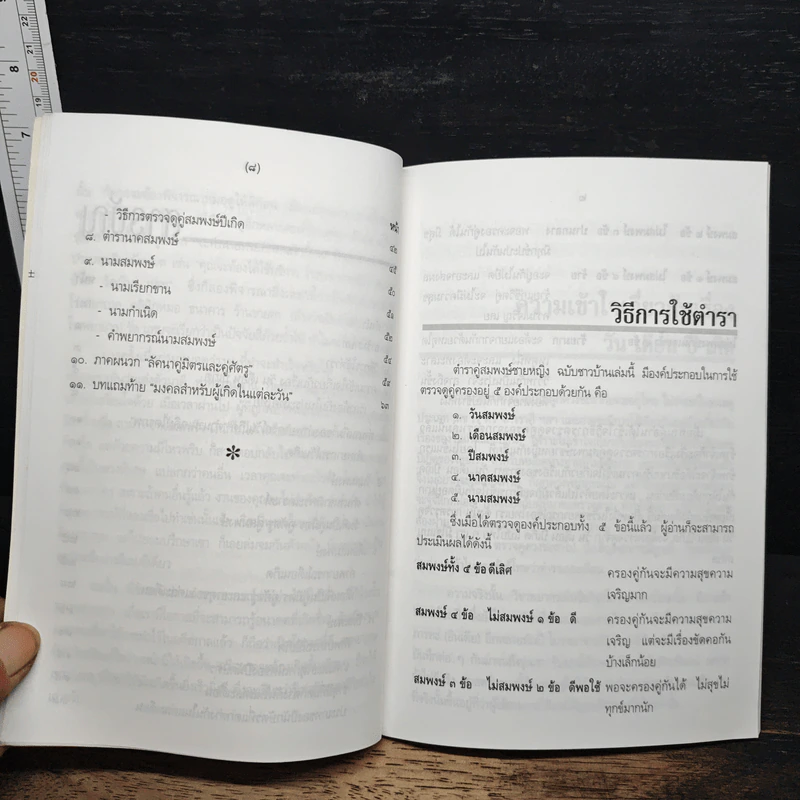 (๘)
หน้า
- วิธีการตรวจดูคู่สมพงษ์ปีเกิด ๔๒
๘. ตำรานาคสมพงษ์ ๔๕
๙. นามสมพงษ์ ๕๐
- นามเรียกขาน ๕๑
- นามกำเนิด ๕๒
- คำพยากรณ์นามสมพงษ์ ๕๔
๑๐. ภาคผนวก "ลัคนาคู่มิตรและคู่ศัตรู" ๕๙
๑๑. บทแถมท้าย "มงคลสำหรับผู้เกิดในแต่ละวัน" ๖๓
*
วิธีการใช้ตำรา
ตำราคู่สมพงษ์ชายหญิง ฉบับชาวบ้านเล่มนี้ มีองค์ประกอบในการใช้
ตรวจดูคู่ครองอยู่ ๕ องค์ประกอบด้วยกัน คือ
๑. วันสมพงษ์
๒. เดือนสมพงษ์
๓. ปีสมพงษ์
๔. นาคสมพงษ์
๕. นามสมพงษ์
ซึ่งเมื่อได้ตรวจดูองค์ประกอบทั้ง ๕ ข้อนี้แล้ว ผู้อ่านก็จะสามารถ
ประเมินผลได้ดังนี้
สมพงษ์ทั้ง ๕ ข้อ ดีเลิศ ครองคู่กันจะมีความสุขความ
เจริญมาก
สมพงษ์ ๔ ข้อ ไม่สมพงษ์ ๑ ข้อ ดี ครองคู่กันจะมีความสุขความ
เจริญ แต่จะมีเรื่องขัดคอกัน
บ้างเล็กน้อย
สมพงษ์ ๓ ข้อ ไม่สมพงษ์ ๒ ข้อ ดีพอใช้ พอจะครองคู่กันได้ ไม่สุขไม่
ทุกข์มากนัก
7
8
19
20
21
22